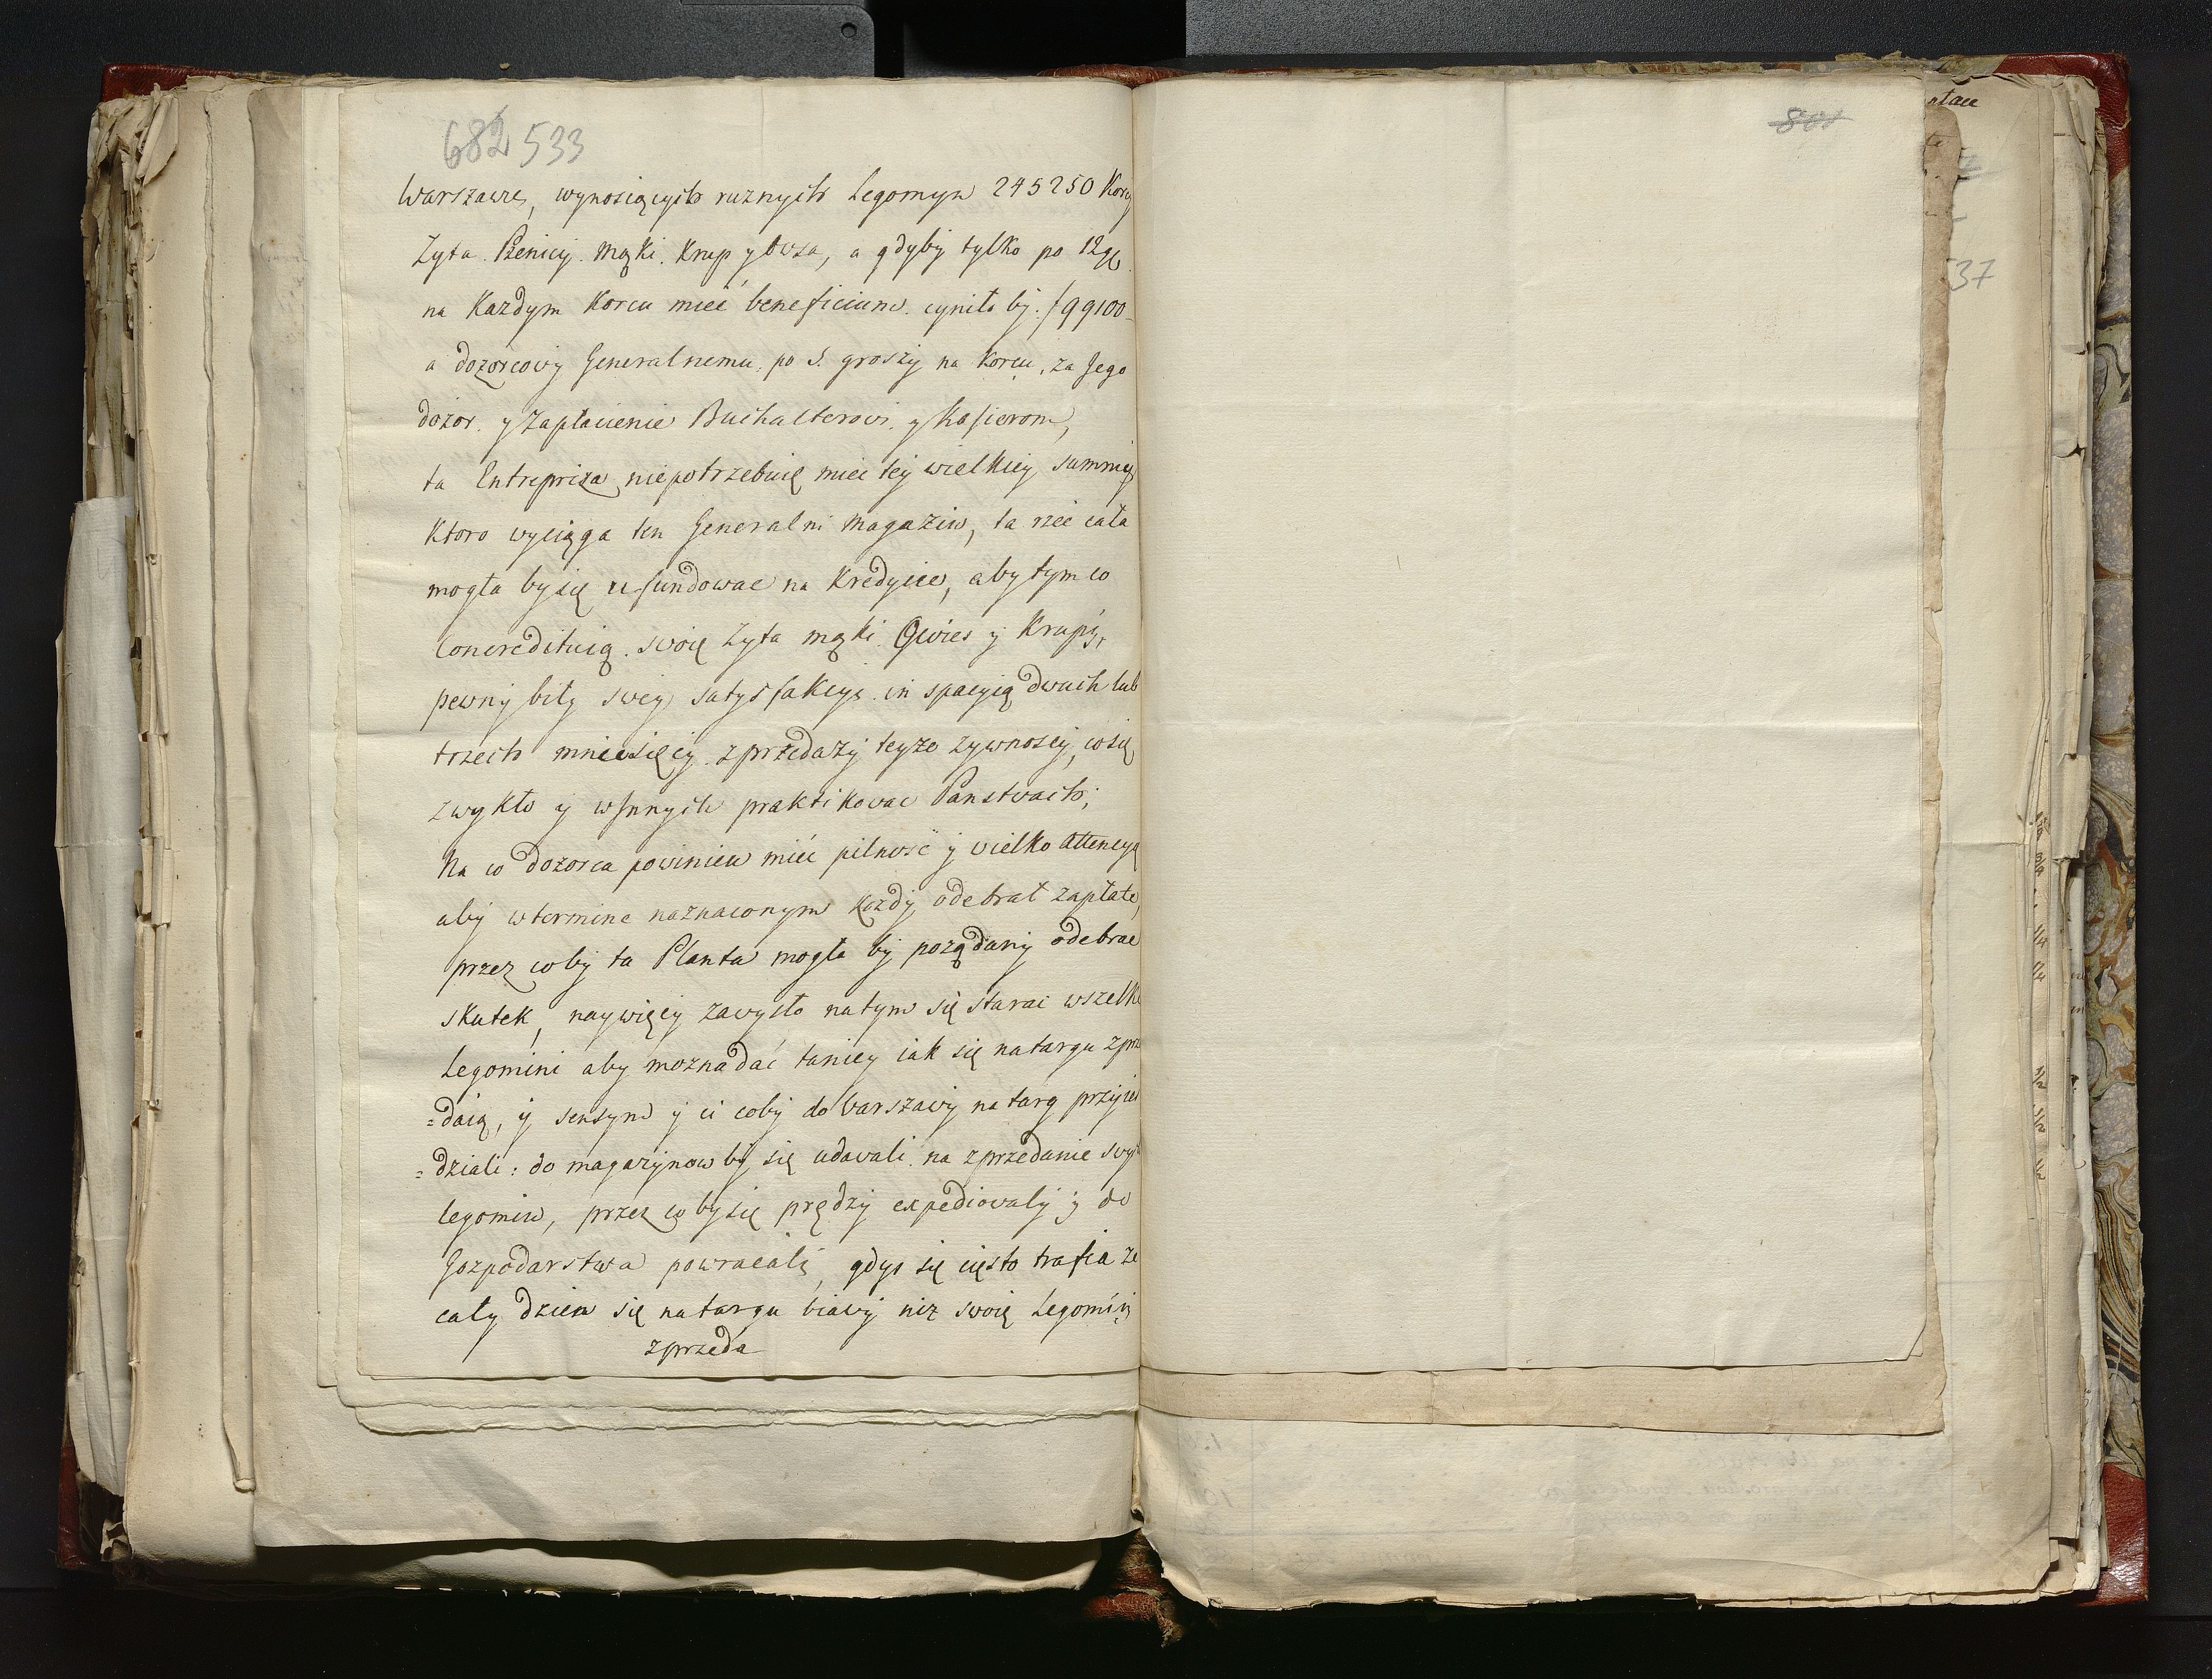 682 533
Warszawe, wynosiących ruznych Legomyn 245250 Korcy
Zyta. Pszenicy. Mąki. Krup y Owsa, a gdyby tylko po 12 gr
na Kazdym Korcu mieć beneficium. cyniło by. f 99100
a dozorcowy Generalnemu. po 5. groszy na Korcu, za Jego
dozor. y Zapłacenie Buchalterowi. y Kasierom,
ta Entrepriza niepotrzebuię miec tey wielkiey summy
Ktoro wyciąga ten Generalni Magazin, ta rzec cała
mogła by się ufundowac na Kredycie, aby tym co
Concredituią. swoię Zyta mąki. Owies y Krupy,
pewny bity swey satysfakcyi. in spacyią dwuch lub
trzech mniesięcy. z przedazy teyze zywnoscy, co się
zwykło y w Innych praktikowac Panstwach;
Na co dozorca powinien mieć pilnosć y wielko Attencyą
aby w termine naznaconym każdy odebrał zapłate,
przez co by ta Planta mogła by poządany odebrac
skutek, naywięcy zawysło na tym się starac wszelk
Legomini aby mozna dać taniey iak się na targu zprz
=daią, y sensym y ci coby do Warszawy na targ przyie
=dziali: do magazynow by się udawali. na zprzedanie swy
legomin, przez co by się prędzy expediowaly y do
Gozpodarstwa powracali, gdys się cięsto trafia ze
cały dzien się na targu biawy niz swoię Legominy
zprzeda
801
ntacc
537